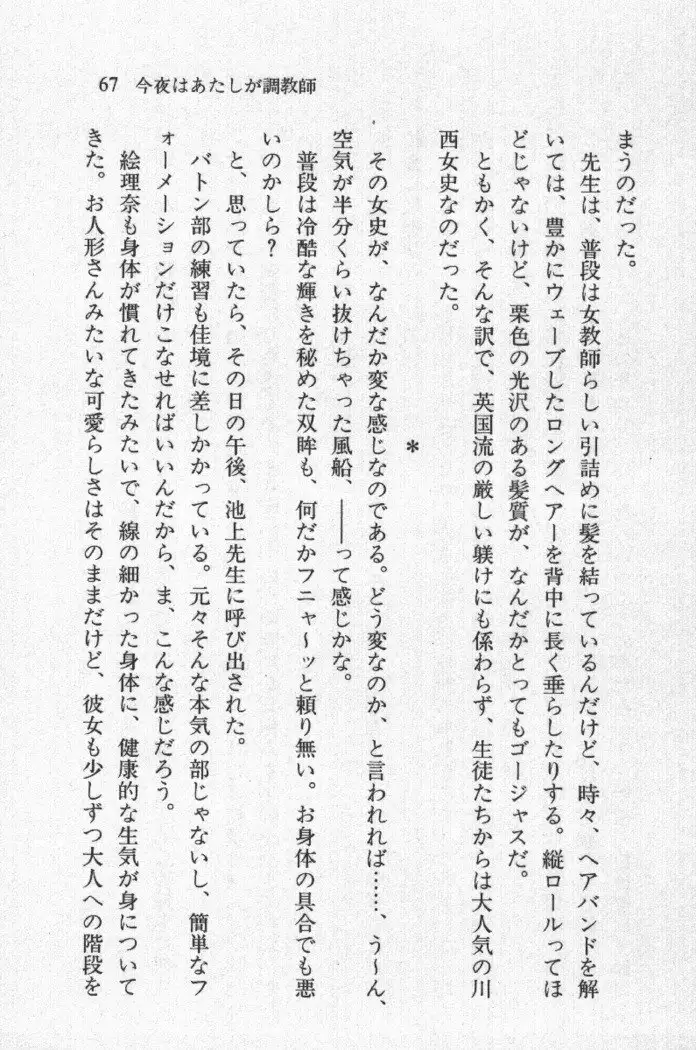 67 今夜はあたしが調教師
まうのだった。
先生は、普段は女教師らしい引詰めに髪を結っているんだけど、時々、ヘアバンドを解
いては、豊かにウェーブしたロングヘアーを背中に長く垂らしたりする。縦ロールってほ
どじゃないけど、栗色の光沢のある髪質が、なんだかとってもゴージャスだ。
ともかく、そんな訳で、英国流の厳しい躾けにも係わらず、生徒たちからは大人気の川
西女史なのだった。
*
その女史が、なんだか変な感じなのである。どう変なのか、と言われれば……、う～ん、
空気が半分くらい抜けちゃった風船、――って感じかな。
普段は冷酷な輝きを秘めた双眸も、何だかフニャ～ッと頼り無い。お身体の具合でも悪
いのかしら？
と、思っていたら、その日の午後、池上先生に呼び出された。
バトン部の練習も佳境に差しかかっている。元々そんな本気の部じゃないし、簡単なフ
ォーメーションだけこなせればいいんだから、ま、こんな感じだろう。
絵理奈も身体が慣れてきたみたいで、線の細かった身体に、健康的な生気が身について
きた。お人形さんみたいな可愛らしさはそのままだけど、彼女も少しずつ大人への階段を